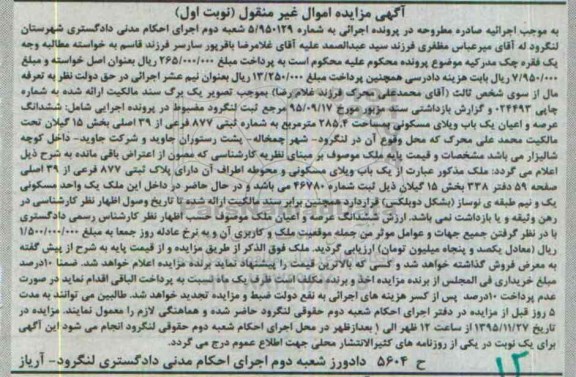 آگهی مزایده اموال غیر منقول (نوبت اول)
به موجب اجرائیه صادره مطروحه در پرونده اجرائی به شماره ۵/۹۵۰۱۲۹ شعبه دوم اجرای احکام مدنی دادگستری شهرستان
لنگرود له آقای میرعباس مظفری فرزند سید عبدالصمد علیه آقای غلامرضا باقرپور سارسر فرزند قاسم به خواسته مطالبه وجه
یک فقره چک مدرکیه موضوع پرونده محکوم علیه محکوم است به پرداخت مبلغ ۲۶۵/۰۰۰/۰۰۰ ریال بعنوان اصل خواسته و مبلغ
۷/۹۵۰/۰۰۰ ریال بابت هزینه دادرسی همچنین پرداخت مبلغ ۱۳/۲۵۰/۰۰۰ ریال بعنوان نیم عشر اجرائی در حق دولت نظر به تعرفه
مال از سوی شخص ثالث (آقای محمدعلی محرک فرزند غلام رضا) بموجب تصویر یک برگ سند مالکیت ارائه شده به شماره
چاپی ۰۲۴۴۹۳ و گزارش بازداشتی سند مزبور مورخ ۹۵/۰۹/۱۷ مرجع ثبت لنگرود مضبوط در پرونده اجرایی شامل: ششدانگ
عرصه و اعیان یک باب ویلای مسکونی به مساحت ۲۸۵.۴ مترمربع به شماره ثبتی ۸۷۷ فرعی از ۳۹ اصلی بخش ۱۵ گیلان تحت
مالکیت محمد علی محرک که محل وقوع آن در لنگرود- شهر چمخاله- پشت رستوران جاوید و شرکت جاوید- داخل کوچه
شالیزار می باشد مشخصات و قیمت پایه ملک موصوف بر مبنای نظریه کارشناسی که مصون از اعتراض باقی مانده به شرح ذیل
اعلام می گردد: ملک مذکور عبارت از یک باب ویلای مسکونی و محوطه اطراف آن دارای پلاک ثبتی ۸۷۷ فرعی از ۳۹ اصلی
صفحه ۵۹ دفتر ۳۳۸ بخش ۱۵ گیلان ذیل ثبت شماره ۴۶۷۸۰ می باشد و در حال حاضر در داخل این ملک یک واحد مسکونی
یک و نیم طبقه ی نوساز (بشکل دوبلکس) قرار دارد همچنین برابر سند مالکیت ارائه شده تا تاریخ وصول اظهار نظر کارشناسی در
رهن وثیقه و یا بازداشت نمی باشد. ارزش ششدانگ عرصه و اعیان ملک موصوف حسب اظهار نظر کارشناس رسمی دادگستری
با در نظر گرفتن جمیع جهات و عوامل موثر من جمله موقعیت ملک و کاربری آن و به نرخ عادله روز جمعا به مبلغ ۱/۵۰۰/۰۰۰/۰۰۰
ریال (معادل یکصد و پنجاه میلیون تومان) ارزیابی گردید. ملک فوق الذکر از طریق مزایده و از قیمت پایه به شرح از پیش گفته
به معرض فروش گذاشته خواهد شد و کسی که بالاترین قیمت را پیشنهاد نماید برنده مزایده اعلام خواهد شد. ضمنا ۱۰درصد
مبلغ خریداری فی المجلس از برنده مزایده اخذ و برنده مکلف است ظرف یک ماه نسبت به پرداخت الباقی اقدام نماید در صورت
عدم پرداخت ۱۰درصد پس از کسر هزینه های اجرائی به نفع دولت ضبط و مزایده تجدید خواهد شد. طالبین می توانند به مدت
۵ روز قبل از مزایده در دفتر اجرای احکام شعبه دوم حقوقی لنگرود حاضر شده و هماهنگی لازم را معمول نمایند. مزایده در
تاریخ ۱۳۹۵/۱۱/۲۷ از ساعت ۱۲ ظهر الی ۱ بعدازظهر در محل اجرای احکام شعبه دوم حقوقی لنگرود انجام می شود این آگهی
برای یک نوبت در یکی از روزنامه های کثیرالانتشار محلی جهت اطلاع عموم درج می گردد.
ح ۵۶۰۴ دادورز شعبه دوم اجرای احکام مدنی دادگستری لنگرود- آریاز
۱۲